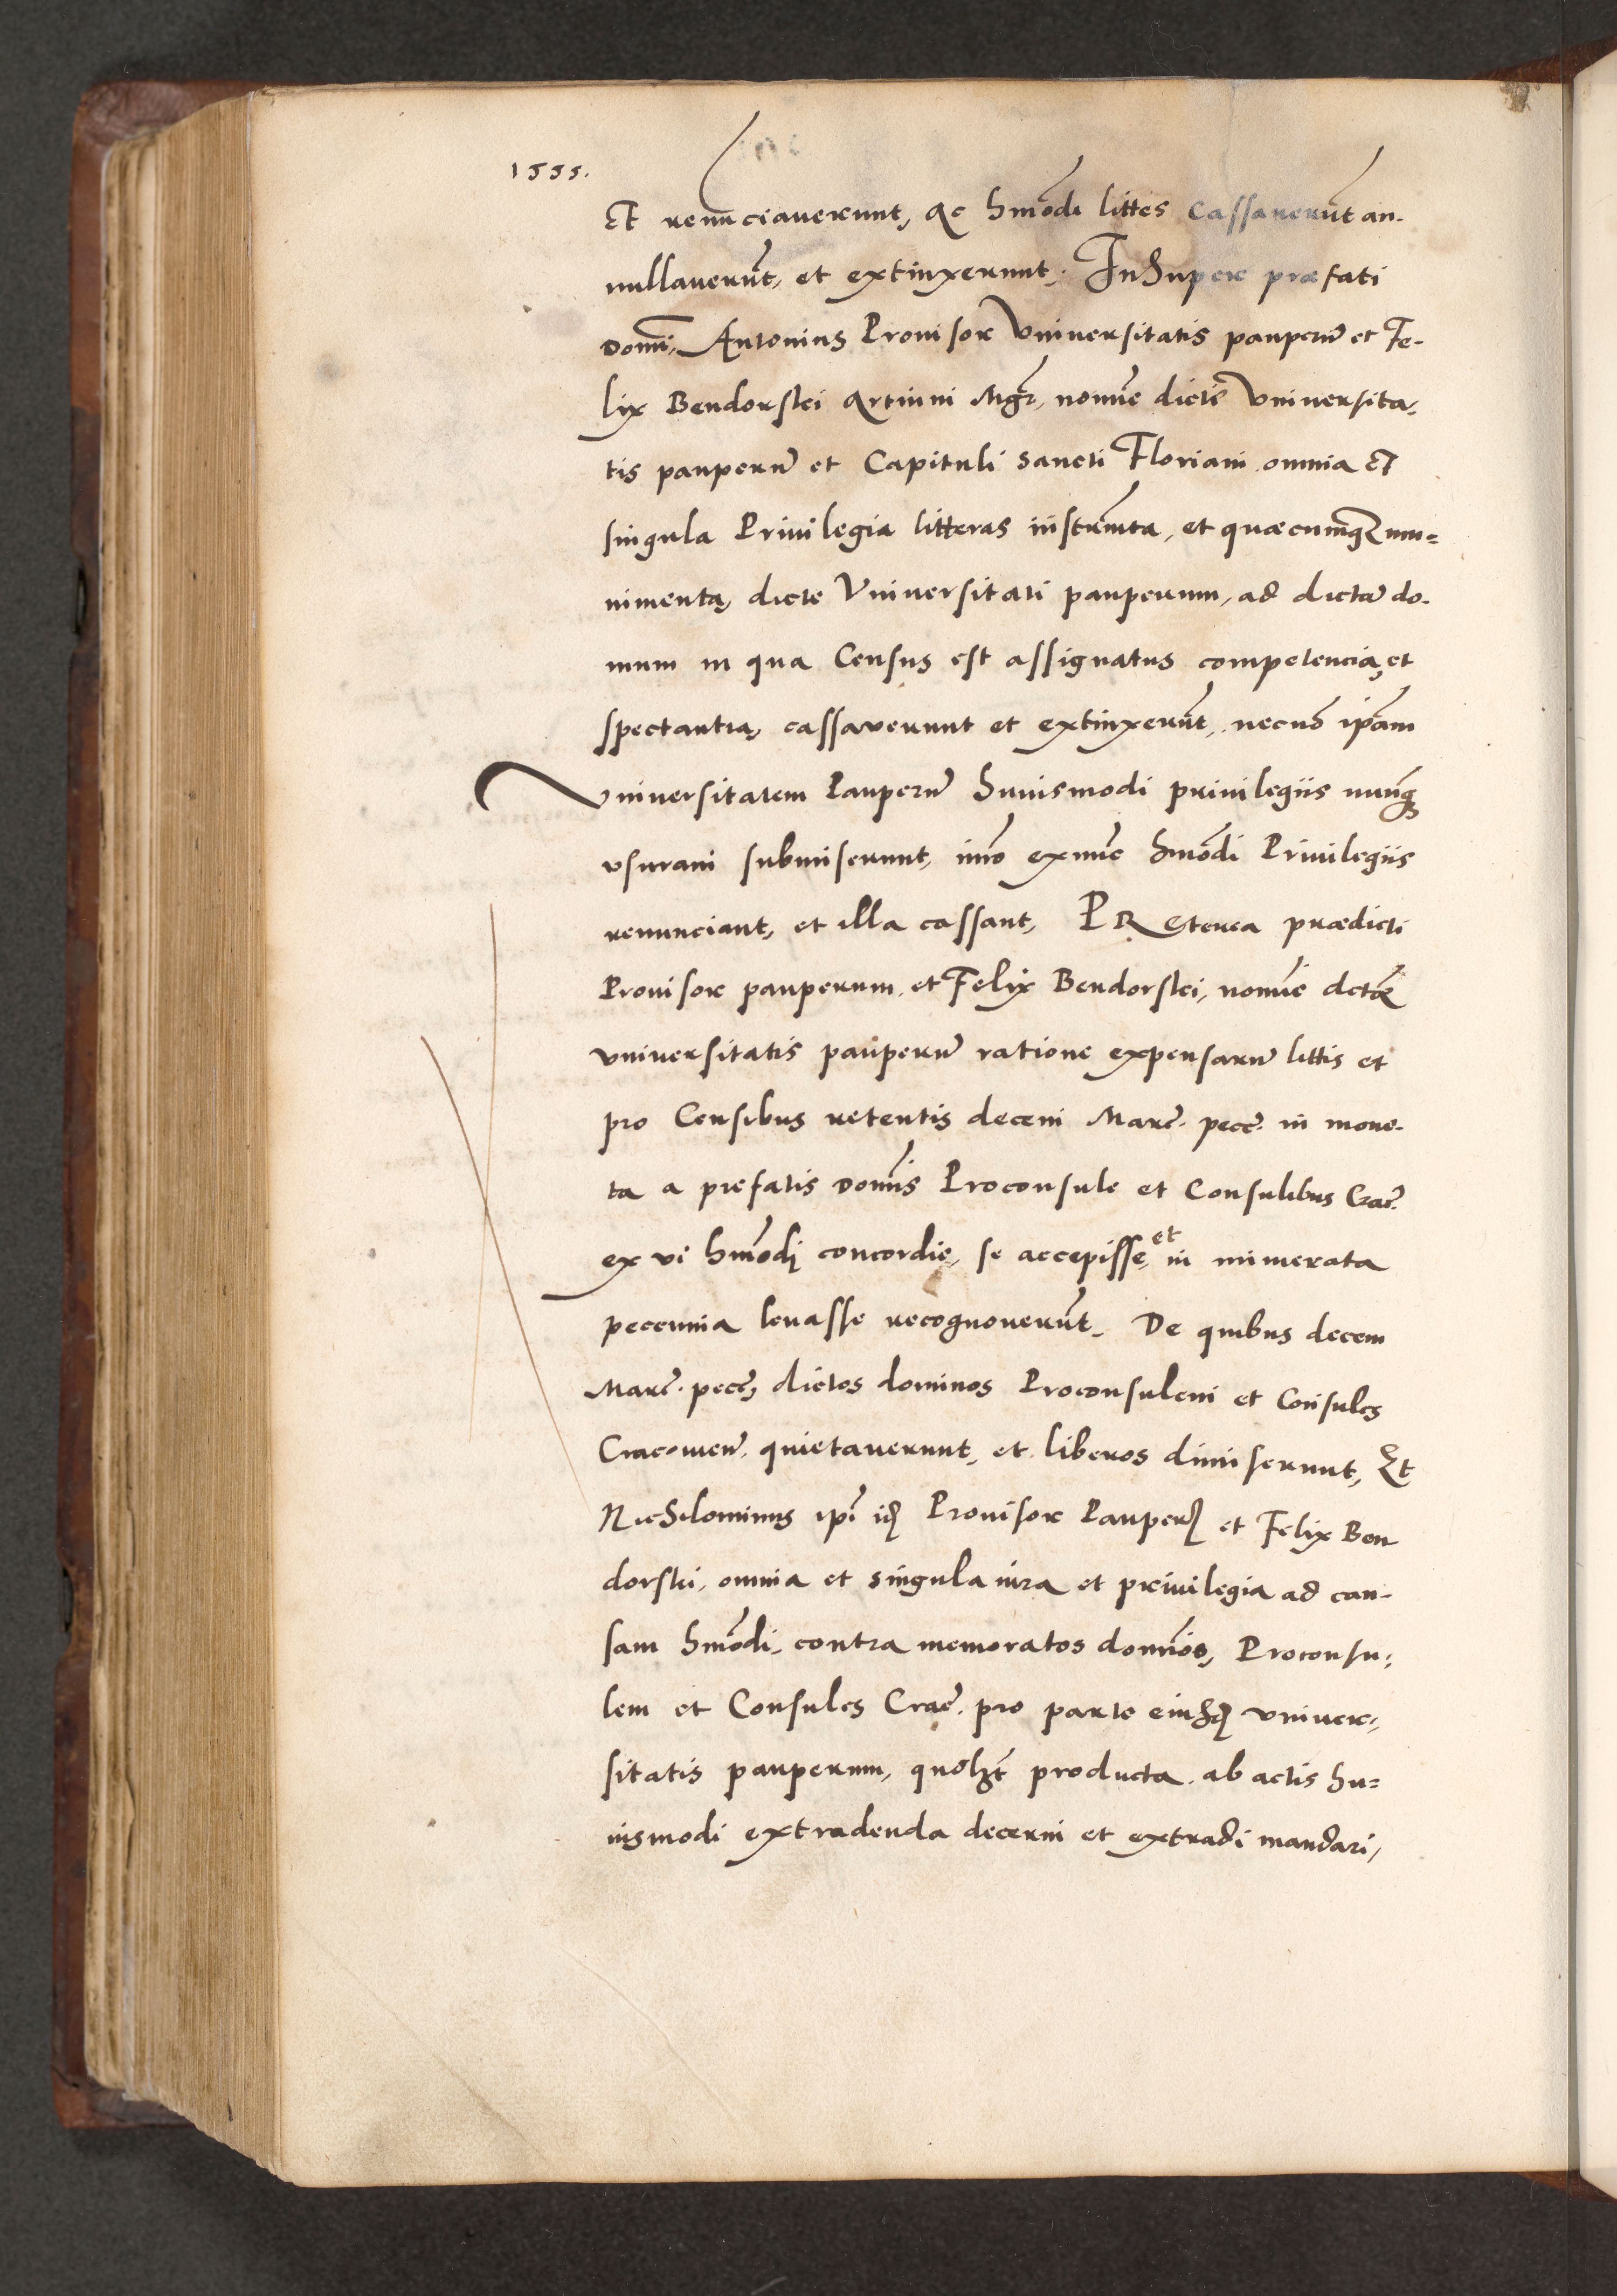 1555.
Et renūciaverunt, Ac hmōdi littēs Cassaverūt an-
nullaverūt, et extinxerunt. InSuper præfati
Domī, Antonius Provisor Universitatis pauperū et Fe-
lix Bendorski Artium Mgr, nomīe dictē Universita-
tis pauperū et Capituli Sancti Floriani omnia Et
singula Privilegia litteras instrumēta, et quæcumqz mu=
nimenta, dicte Universitati pauperum, ad dictā do-
mum in qua Census est assignatus competencia, et
spectantia, cassaverunt et extinxerūt, necnō ipsam
Universitatem Pauperū huiusmodi privilegiis nunqz
usuram submiserunt, immo exnunc hmōdi Privilegiis
renunciant, et illa cassant, PREterea prædicti
Provisor pauperum, et Felix Bendorski, nomīe dctæ
universitatis pauperū ratione expensarū littis et
pro Censibus retentis decem Marc. pecc. in mone-
ta a prefatis Domīs Proconsule et Consulibus Crac.
ex vi hmōdi concordie, se accepisse, et in numerata
peccunia levasse recognoverūt. De quibus decem
Marc. pecc, dictos dominos Proconsulem et Consules
Cracovien. quietaverunt, et liberos dimiserunt, Et
Nichilominus ipī idē Provisor Pauperū et Felix Ben
dorski, omnia et singula iura et privilegia ad cau-
sam hmōdi, contra memoratos domīos, Proconsu-
lem et Consules Crac. pro parte eiusdē univer-
sitatis pauperum, quōlzt producta ab actis hu=
iusmodi extradenda decerni et extradi mandari,